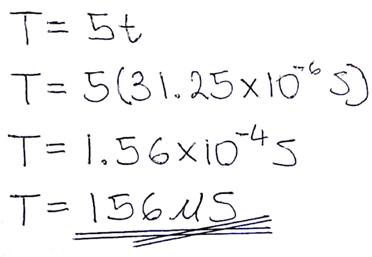 T = 5t
T = 5(31.25×10⁻⁶ S)
T = 1.56×10⁻⁴ S
T = 156 μS